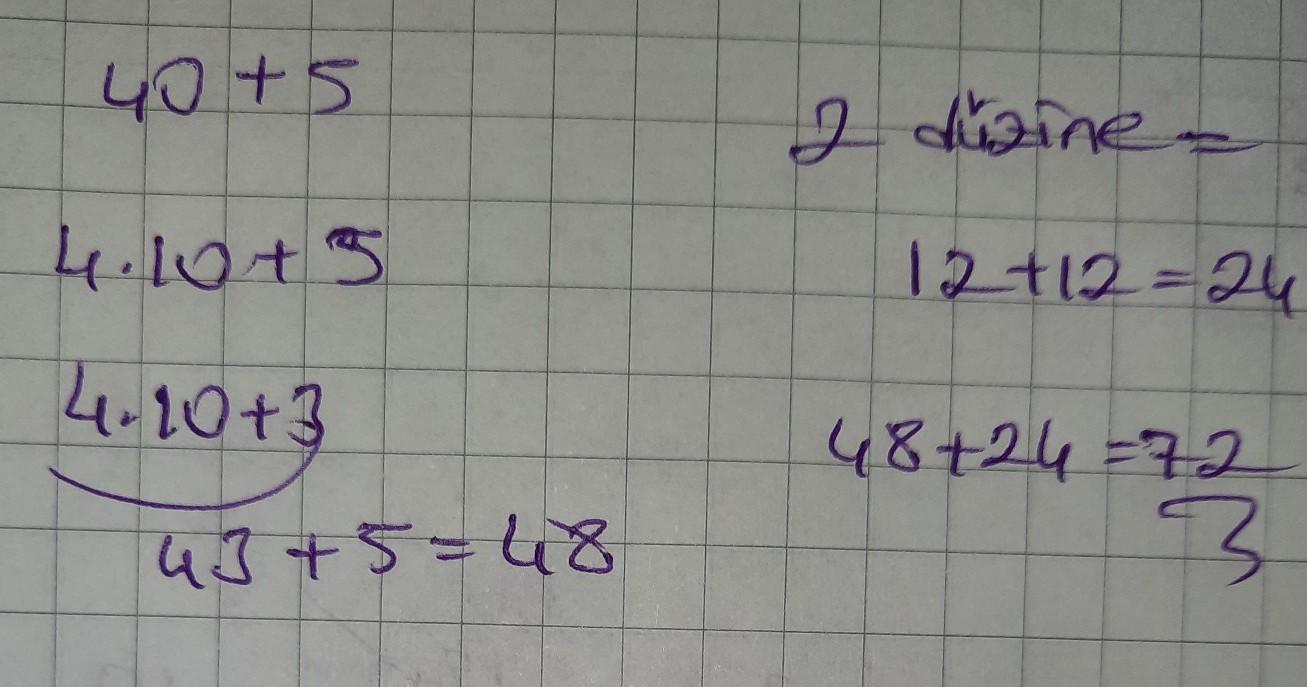 40 + 5
4.10 + 5
4.10 + 3
43 + 5 = 48
2 düzine =
12 + 12 = 24
48 + 24 = 72
3